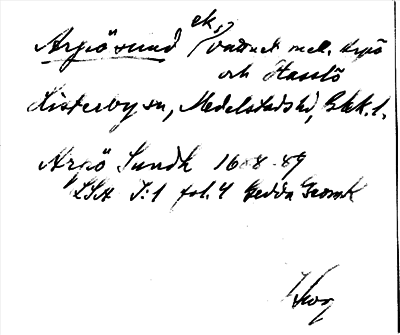 Arpösund ek.;
/vadnet mell. Arpö
och Hasslö
Listerby sn, Medelstads hd, Blek. l.
Arpö Sundh 1688-89
LSA I:1 fol. 4 Gedda Geomk